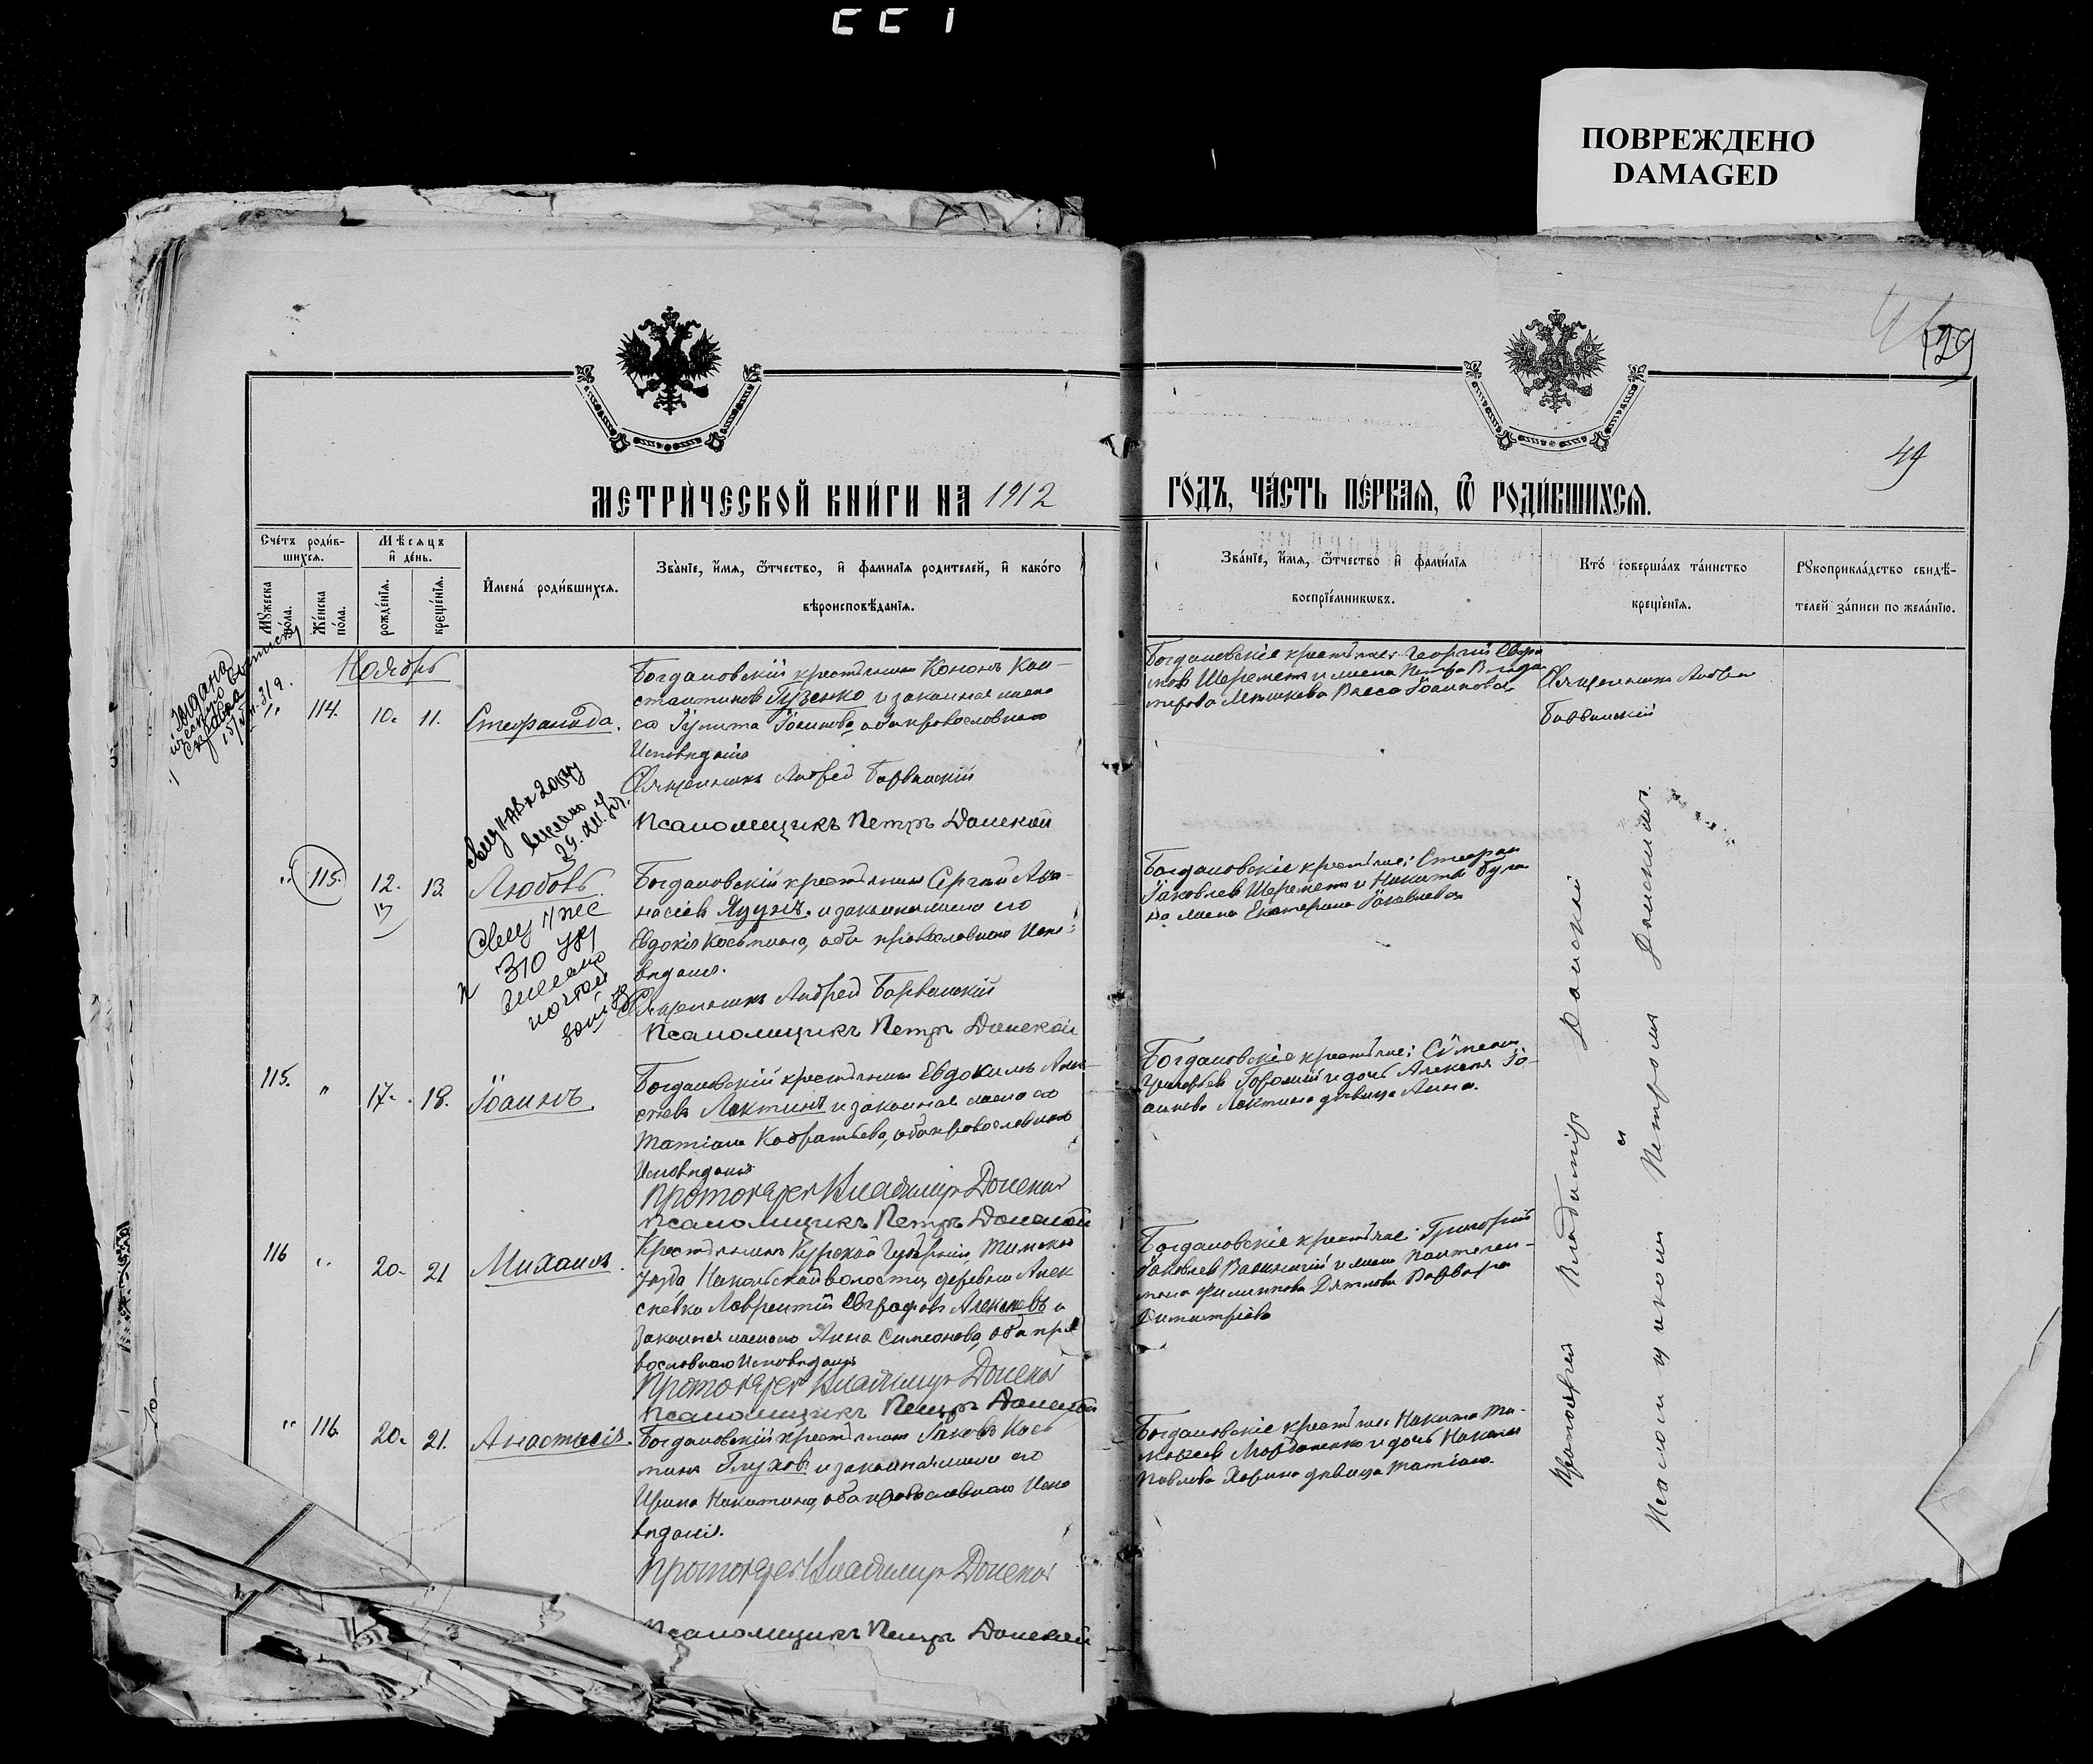 ПОВРЕЖДЕНО
DAMAGED
129
49
МЕТРИЧЕСКОЙ КНИГИ НА 1912
ГОДЪ, ЧАСТЬ ПЕРВАЯ, Ѿ РОДИВШИХСЯ.
Счетъ родив-
шихся.
Мужеска пола.
Женска пола.
Мѣсяцъ
и день.
рожденія.
крещенія.
Имена родившихся.
Званіе, имя, ѿтчество, и фамилія родителей, и какого
вѣроисповѣданія.
Званіе, имя, ѿтчество и фамилія
воспріемниковъ.
Кто совершалъ таинство
крещенія.
Рукоприкладство свидѣ-
телей записи по желанію.
Ноябрь
" 114. 10. 11. Стефанида.
Богдановскій крестьянинъ Кононъ Кон-
стантиновъ Гузенко и законная жена
его Гулита Іоаннова, оба православнаго
Исповѣданія
Священникъ Андрей Барвинскій
Псаломщикъ Петръ Донской
Богдановскіе крестьяне: Георгій
Шереметъ и жена Петра
Васса Іоаннова
Священникъ Андрей
Барвинскій
" 115. 12. 13. Любовь
Богдановскій крестьянинъ Сергѣй Афа-
насіевъ Яцунъ и законная жена его
Евдокія Косьмина, оба православнаго Испо-
вѣданія.
Священникъ Андрей Барвинскій
Псаломщикъ Петръ Донской
Богдановскіе крестьяне: Стефанъ
Іаковлев Шереметъ и Никиты
жена Екатерина Іаковлева
115. " 17. 18. Іоаннъ
Богдановскій крестьянинъ Евдокимъ
Локтинъ и законная жена его
Татіана Кодратьева, оба православнаго
Исповѣданія
Протоіерей Владимиръ Донской
Псаломщикъ Петръ Донской
Богдановскіе крестьяне: Сѵмеонъ
и дочь Алексѣя Іо-
аннова Локтина дѣвица Анна.
116 " 20. 21 Михаилъ.
Крестьянинъ Курской Губерніи, Тимскаго
уѣзда Никольской волости, деревни Алек
сѣевки Лаврентій Евграфовъ Алексѣевъ и
законная жена его Анна Симеонова, оба пра
вославнаго Исповѣданія
Протоіерей Владимиръ Донской
Псаломщикъ Петръ Донской
Богдановскіе крестьяне: Григорій
Іаковлев и жена Пантелей-
мона Филиппова Дятлова Варвара
Димитріева
" 116. 20. 21. Анастасія.
Богдановскій крестьянинъ Іаковъ Кось
минъ Глуховъ и законная жена его
Ирина Никитина, оба православнаго Испо
вѣданія.
Протоіерей Владимиръ Донской
Псаломщикъ Петръ Донской
Богдановскіе крестьяне: Никита Ти-
моѳеев и дочь Николая
Павлова Харина дѣвица Татіана.
Протоіерей Владимиръ Донской
съ
Псаломщикомъ Петромъ Донскимъ.